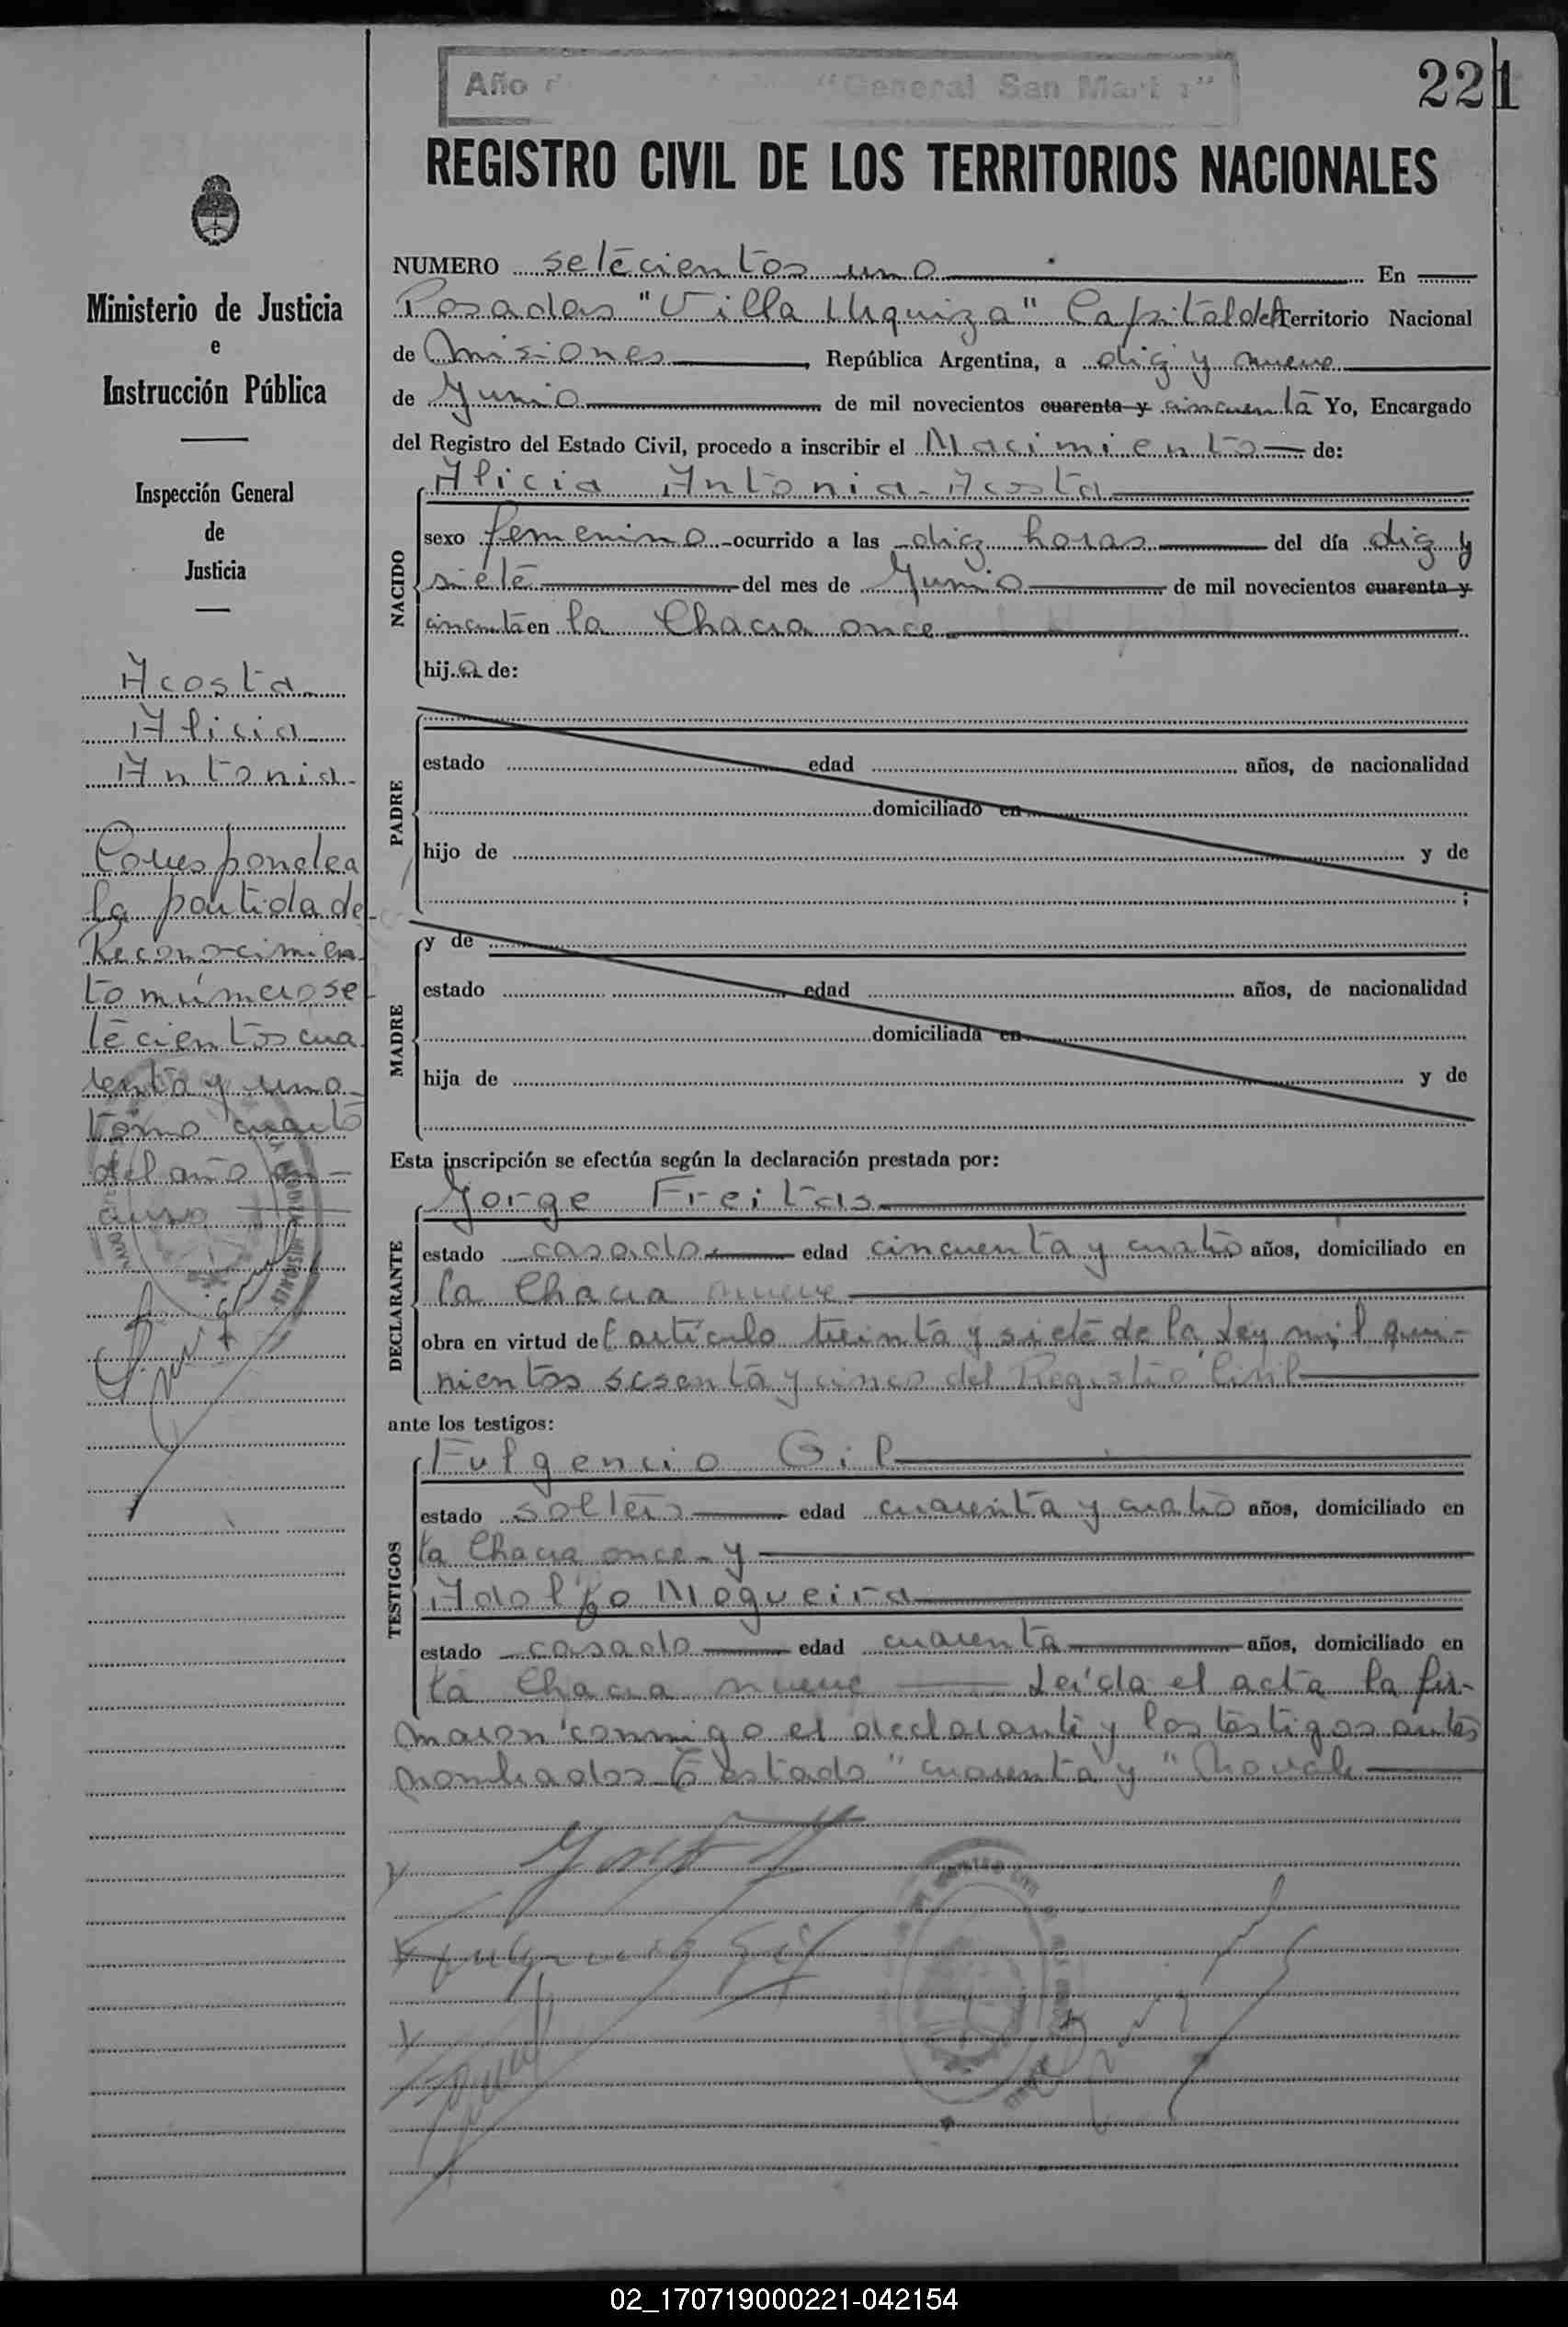 Año "General San Martín"
221
REGISTRO CIVIL DE LOS TERRITORIOS NACIONALES
Ministerio de Justicia
e
Instrucción Pública
Inspección General
de
Justicia
Acosta
Alicia
Antonia
Corresponde a
la partida de
Reconocimien
to número se
tecientos cua
renta y uno
tomo cuarto
del año en
curso
NUMERO setecientos uno En
Posadas "Villa Urquiza" Capital del Territorio Nacional
de Misiones, República Argentina, a diez y nueve
de Junio de mil novecientos cuarenta y cincuenta Yo, Encargado
del Registro del Estado Civil, procedo a inscribir el Nacimiento de:
NACIDO
Alicia Antonia Acosta
sexo femenino ocurrido a las diez horas del día diez y
siete del mes de Junio de mil novecientos cuarenta y
cincuenta en la Chacra once
hij a de:
PADRE
estado edad años, de nacionalidad
domiciliado en
hijo de y de
;
MADRE
y de
estado edad años, de nacionalidad
domiciliada en
hija de y de
Esta inscripción se efectúa según la declaración prestada por:
DECLARANTE
Jorge Freitas
estado casado edad cincuenta y cuatro años, domiciliado en
la Chacra nueve
obra en virtud del artículo treinta y siete de la Ley mil qui-
nientos sesenta y cinco del Registro Civil
ante los testigos:
TESTIGOS
Fulgencio Gil
estado soltero edad cuarenta y cuatro años, domiciliado en
la Chacra once - y
Adolfo Nogueira
estado casado edad cuarenta años, domiciliado en
la Chacra nueve Leída el acta la fir-
maron conmigo el declarante y los testigos antes
nombrados. Testado "cuarenta y" No vale
Fulgencio Gil
02_170719000221-042154